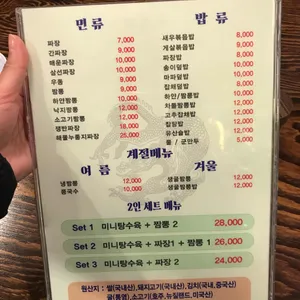 면 류
짜장 7,000
간짜장 9,000
해운짜장 10,000
삼선짜장 10,000
우동 9,000
짬뽕 9,000
하얀짬뽕 10,000
낙지짬뽕 12,000
소고기짬뽕 12,000
쟁반짜장 18,000
해물누룽지짜장 25,000
밥 류
새우볶음밥 8,000
게살볶음밥 9,000
짜장밥 8,000
송이덮밥
마파덮밥
잡채덮밥
하얀/짬뽕밥
차돌짬뽕밥 12,000
고추잡채밥 12,000
잡탕밥
유산슬밥
물 / 군만두
계절메뉴
여 름
냉짬뽕 12,000
콩국수 10,000
겨울
생굴짬뽕 12,000
생굴짬뽕밥 12,000
2인 세트 메뉴
Set 1 미니탕수육 + 짬뽕 2 28,000
Set 2 미니탕수육 + 짜장1 + 짬뽕 1 26,000
Set 3 미니탕수육 + 짜장 2 24,000
원산지 : 쌀(국내산),돼지고기(국내산),김치(국내,중국산)
굴(통영),소고기(호주,뉴질랜드,미국산)